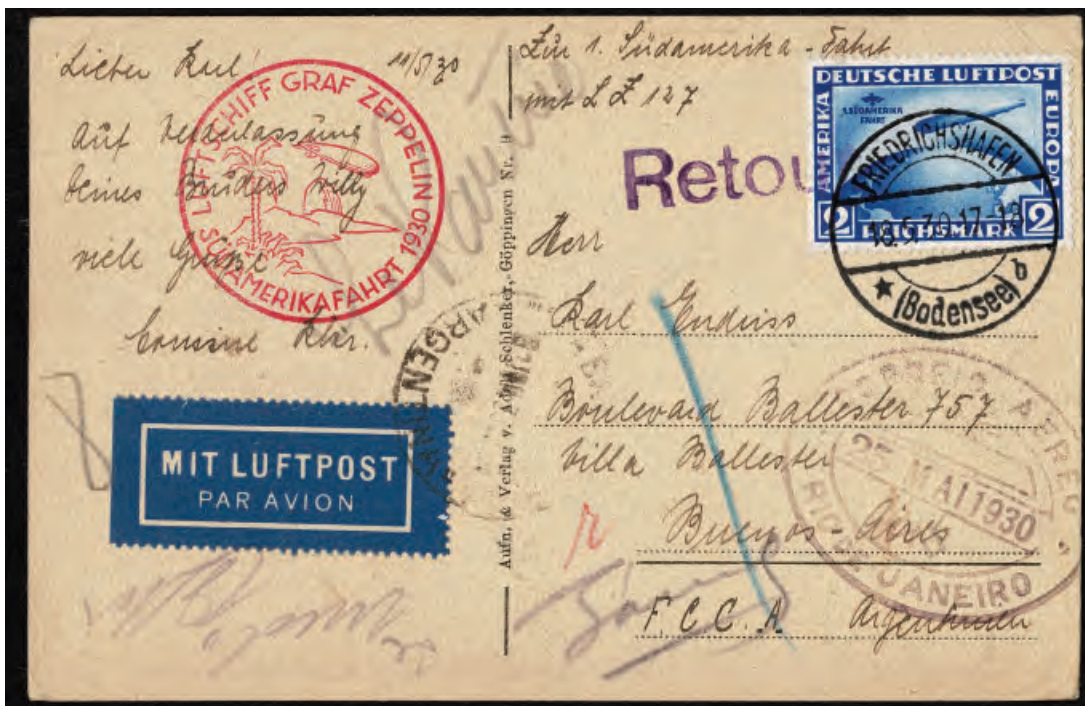 Lieber Karl, 11/5/30
Auf Veranlassung
deines Bruders Willy
viele Grüße
Cousine Klär.
LUFTSCHIFF GRAF ZEPPELIN
SÜDAMERIKAFAHRT 1930
MIT LUFTPOST
PAR AVION
Aufn. & Verlag v. Adolf Schlenker, Göppingen Nr. 9
Zur 1. Südamerika-Fahrt
mit LZ 127
Retou
DEUTSCHE LUFTPOST
1. SÜDAMERIKA
FAHRT
AMERIKA
EUROPA
2 REICHSMARK 2
FRIEDRICHSHAFEN
18.5.30.17-18
(Bodensee) b
Herr
Karl Enduss
Boulevard Ballester 757
Villa Ballester
Buenos-Aires
F.C.C.A. Argentinien
ARGENTINA
CORREIO AEREO
25 MAI 1930
RIO DE JANEIRO
r